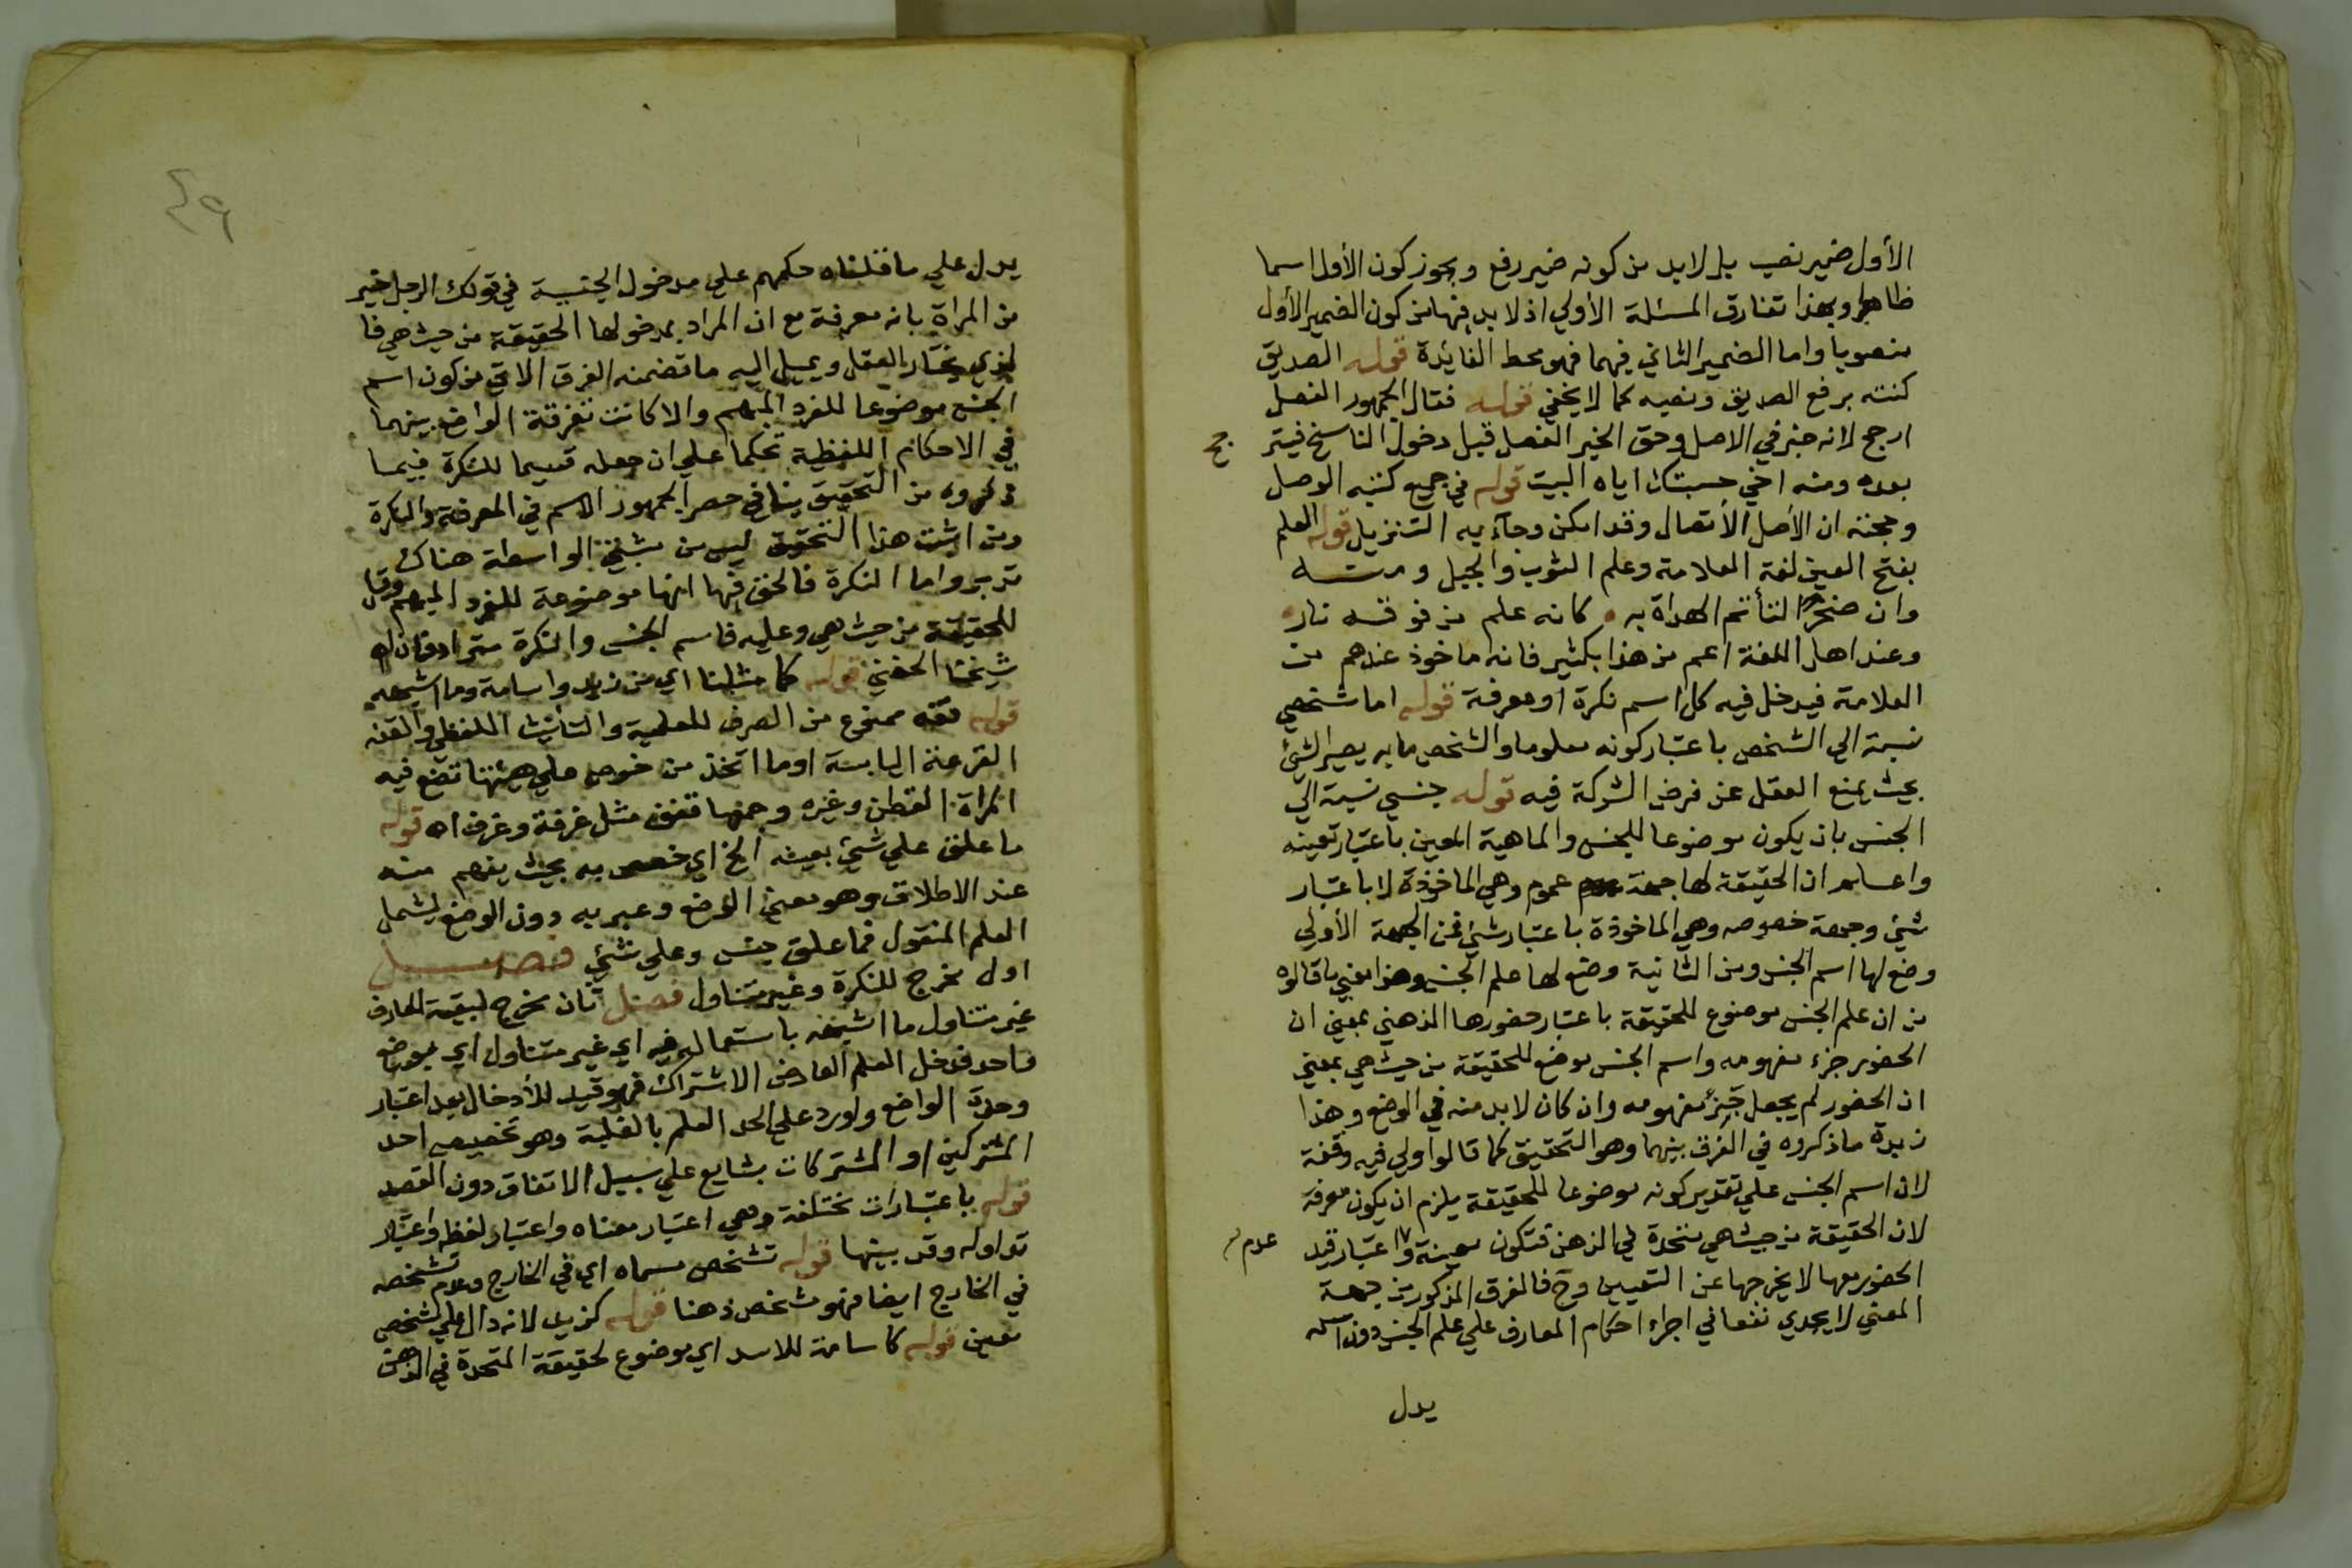 الأول ضمير نصب بل لابد من كونه ضمير رفع ويجوز كون الأول اسما
ظاهرا وبهذا تفارق المسئلة الأولي اذ لا بد فيها من كون الضمير الأول
منصوبا واما الضمير الثاني فيهما فهو محط الفائدة قوله الصديق
كنته برفع الصديق ونصبه كما لا يخفي قوله فقال الجمهور الفصل
ارجح لانه خبر في الاصل وحق الخبر الفصل قبل دخول الناسخ فيترجح
بعده ومنه اخي حسبتك اياه البيت قوله في جميع كتبه الوصل
وحجته ان الأصل الأتصال وقد امكن وجآء به التنزيل قوله العلم
بفتح العين لغة العلامة وعلم الثوب والجبل ومنه
وان صخرا لتأتم الهداة به كانه علم من فوقه نار
وعند اهل اللغة اعم من هذا بكثير فانه ماخوذ عندهم من
العلامة فيدخل فيه كل اسم نكرة او معرفة قوله اما شخصي
نسبة الي الشخص باعتبار كونه معلوما والشخص ما به يصير الشئ
بحيث يمنع العقل عن فرض الشركة فيه قوله جنسي نسبة الي
الجنس بان يكون موضوعا للجنس والماهية المعين باعتبار تعينه
واعلم ان الحقيقة لها جهة عموم وهي الماخوذة لا باعتبار
شئ وجهة خصوصه وهي الماخوذة باعتبار شئ فمن الجهة الأولي
وضع لها اسم الجنس ومن الثانية وضع لها علم الجنس وهذا معني ما قالوه
من ان علم الجنس موضوع للحقيقة باعتبار حضورها الذهني بمعني ان
الحضور جزء مفهومه واسم الجنس موضع للحقيقة من حيث هي بمعني
ان الحضور لم يجعل جزء مفهومه وان كان لابد منه في الوضع وهذا
زبدة ما ذكروه في الفرق بينهما وهو التحقيق كما قالوا ولي فيه وقفة
لان اسم الجنس علي تقدير كونه موضوعا للحقيقة يلزم ان يكون معرفة
لان الحقيقة من حيث هي متحدة في الذهن فتكون معينة واعتبار قيد
عدم
الحضور معها لا يخرجها عن التعيين وح فالفرق المذكور من جهة
المعني لا يجدي نفعا في اجراء احكام المعارف علي علم الجنس دون اسمه
يدل
٤٩
يدل علي ما قلناه حكمهم علي مدخول الجنسية في قولك الرجل خير
من المراة بانه معرفة مع ان المراد بمدخولها الحقيقة من حيث هي فا
لذي يختاره العقل ويميل اليه ما تضمنه الفرق الاتي من كون اسم
الجنس موضوعا للفرد المبهم والا كانت تفرقة الواضع بينهما
في الاحكام اللفظية تحكما علي ان جعله قسيما للنكرة فيما
ذكروه من التحقيق ينافي حصر الجمهور الاسم في المعرفة والنكرة
ومن اثبت هذا التحقيق ليس من مثبتي الواسطة هناك
تدبر واما النكرة فالحق فيها انها موضوعة للفرد المبهم وقيل
للحقيقة من حيث هي وعليه فاسم الجنس والنكرة مترادفان اه
شيخنا الحفني قوله كما مثلنا اي من زيد واسامة وما اشبهه
قوله قفه ممنوع من الصرف للعلمية والتانيث اللفظي والقفه
القرعة اليابسة او ما اتخذ من خوص علي هيئتها تضع فيه
المراة القطن وغيره وجمعها قفف مثل غرفة وغرف اه قوله
ما علق علي شئ بعينه الخ اي خصص به بحيث يفهم منه
عند الاطلاق وهو معني الوضع وعبر به دون الوضع ليشمل
العلم المنقول فما علق جنس وعلي شئ فصل
اول مخرج للنكرة وغير متناول فصل ثان مخرج لبقية المعارف
غير متناول ما اشبهه باستعماله فيه اي غير متناول اي بوضع
واحد فدخل العلم العارض الاشتراك فهو قيد للأدخال بعد اعتبار
وحدة الواضع واورد علي الحد العلم بالغلبة وهو تخصيص احد
المشتركين او المشتركات بشايع علي سبيل الاتفاق دون القصد
قوله باعتبارات مختلفة وهي اعتبار معناه واعتبار لفظه واعتبار
تداوله وقد بينها قوله تشخص مسماه اي في الخارج وعدم تشخصه
في الخارج ايضا فهو متشخص ذهنا قوله كزيد لانه دال علي شخص
معين قوله كاسامة للاسد اي موضوع لحقيقة المتحدة في الذهن